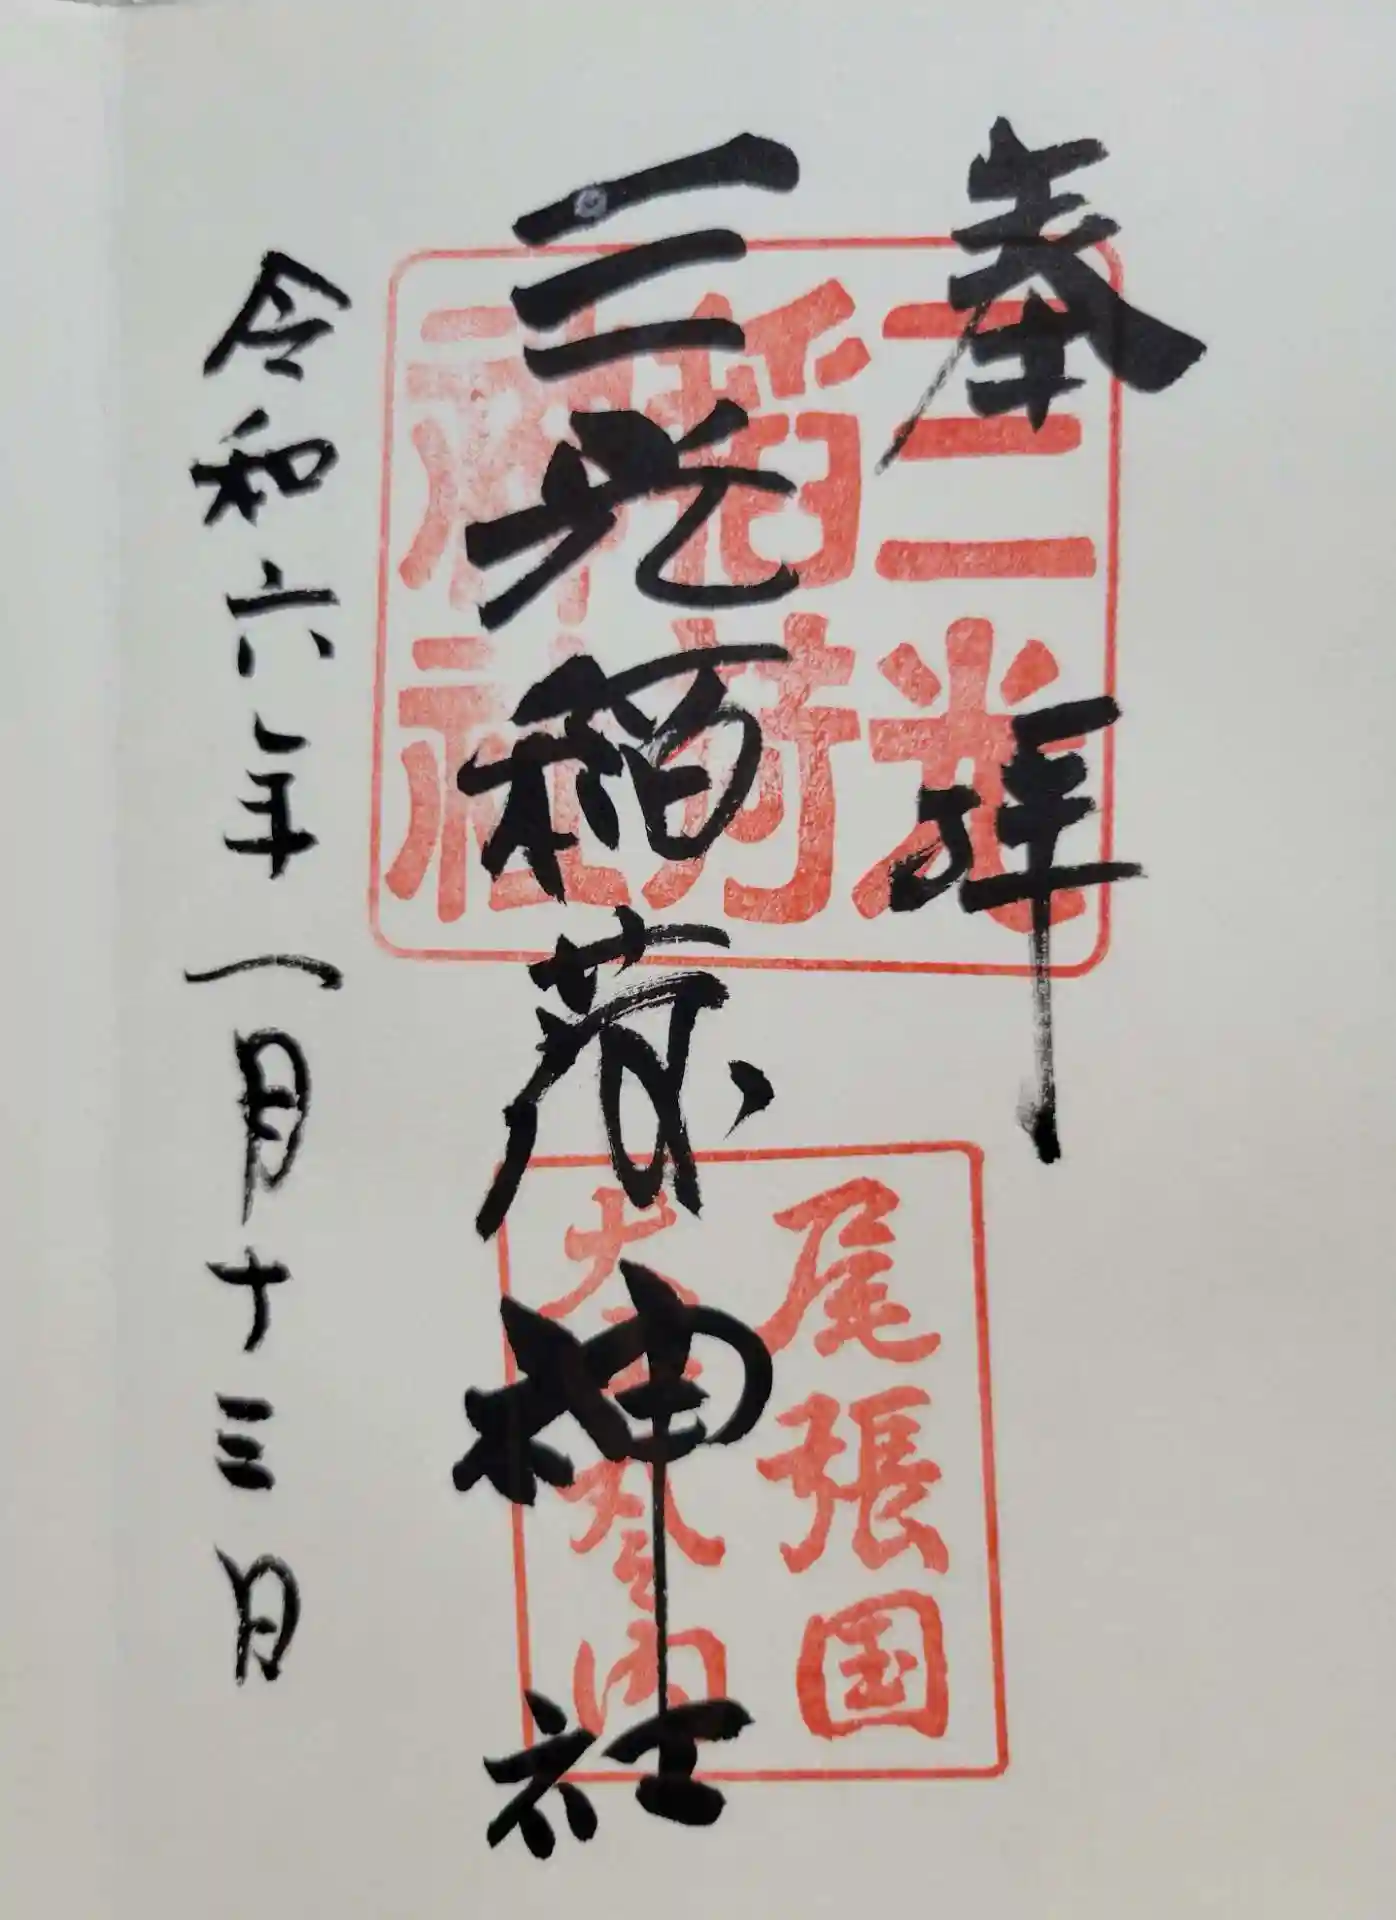 奉拝
三光稲荷神社
令和六年一月十三日
三光
稲荷
神社
尾張国
犬 内